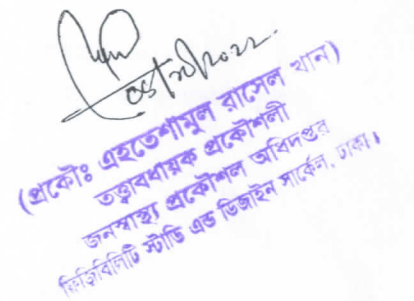 (প্রকৌঃ এহতেশামুল রাসেল খান)
তত্ত্বাবধায়ক প্রকৌশলী
জনস্বাস্থ্য প্রকৌশল অধিদপ্তর
ফিজিবিলিটি স্টাডি এন্ড ডিজাইন সার্কেল, ঢাকা।